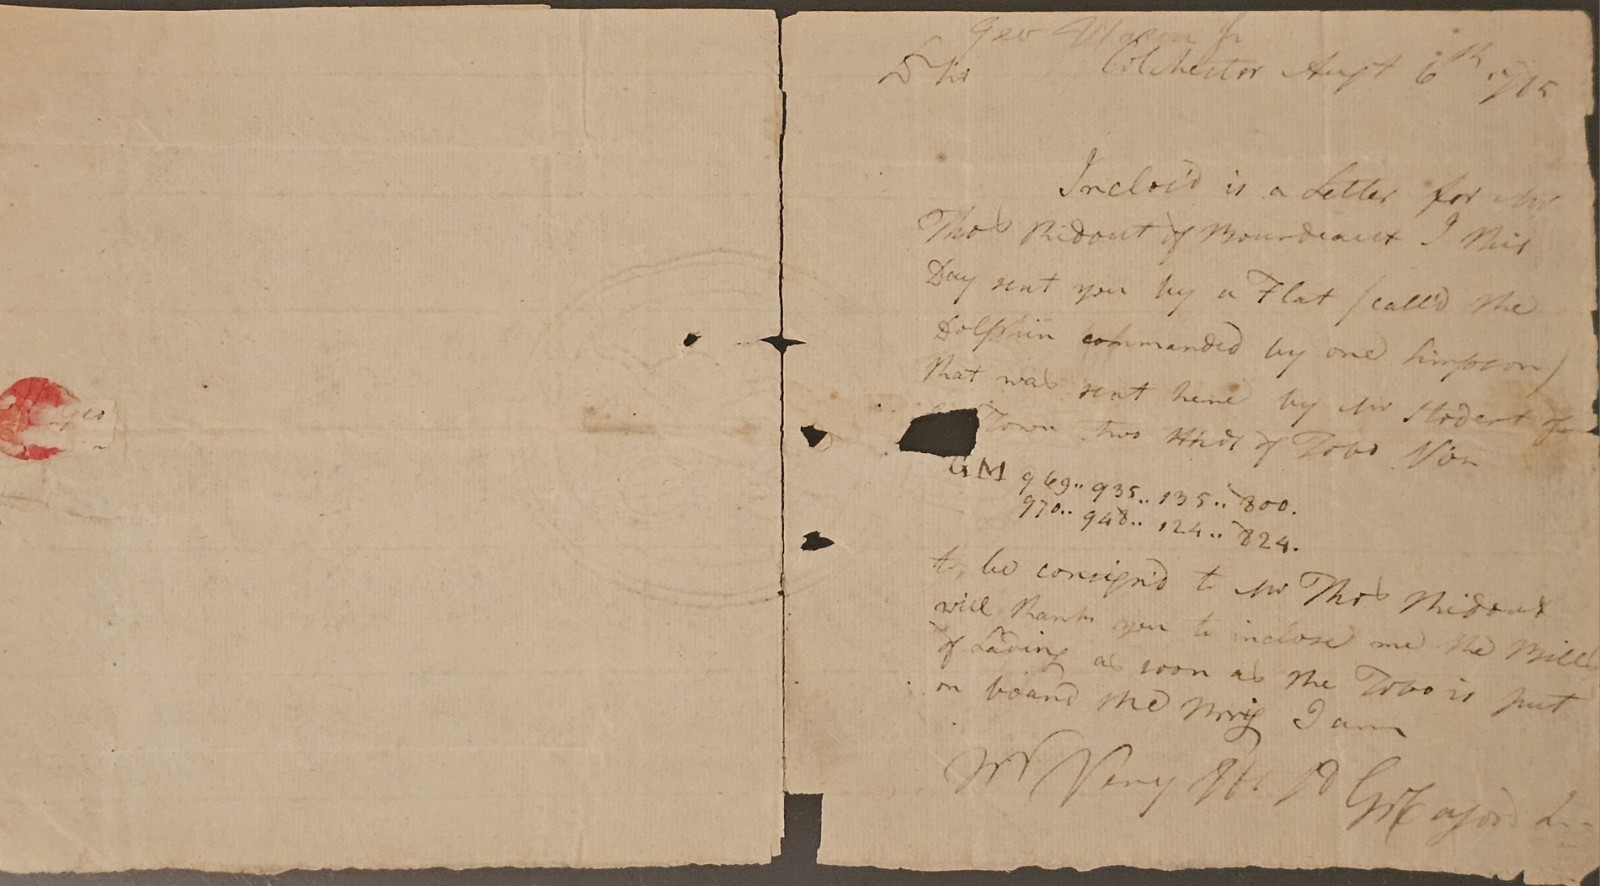 Geo Mason Jr
Dr Sir Colchester Augt 6th 1785
Inclos'd is a Letter for Mr
Thos Ridout of Bourdeaux I this
Day sent you by a Flat (call'd the
Dolphin commanded by one Simpson)
that was sent here by Mr Hodert of
Town two Hhds of Tobo Viz
GM 969.. 935.. 135.. 800.
970.. 948.. 124.. 824.
to be consign'd to Mr Thos Ridout
will thank you to inclose me the Bills
of Lading as soon as the Tobo is put
on board the Brig I am
Yr Very Hb St G Mason Jr
Geo